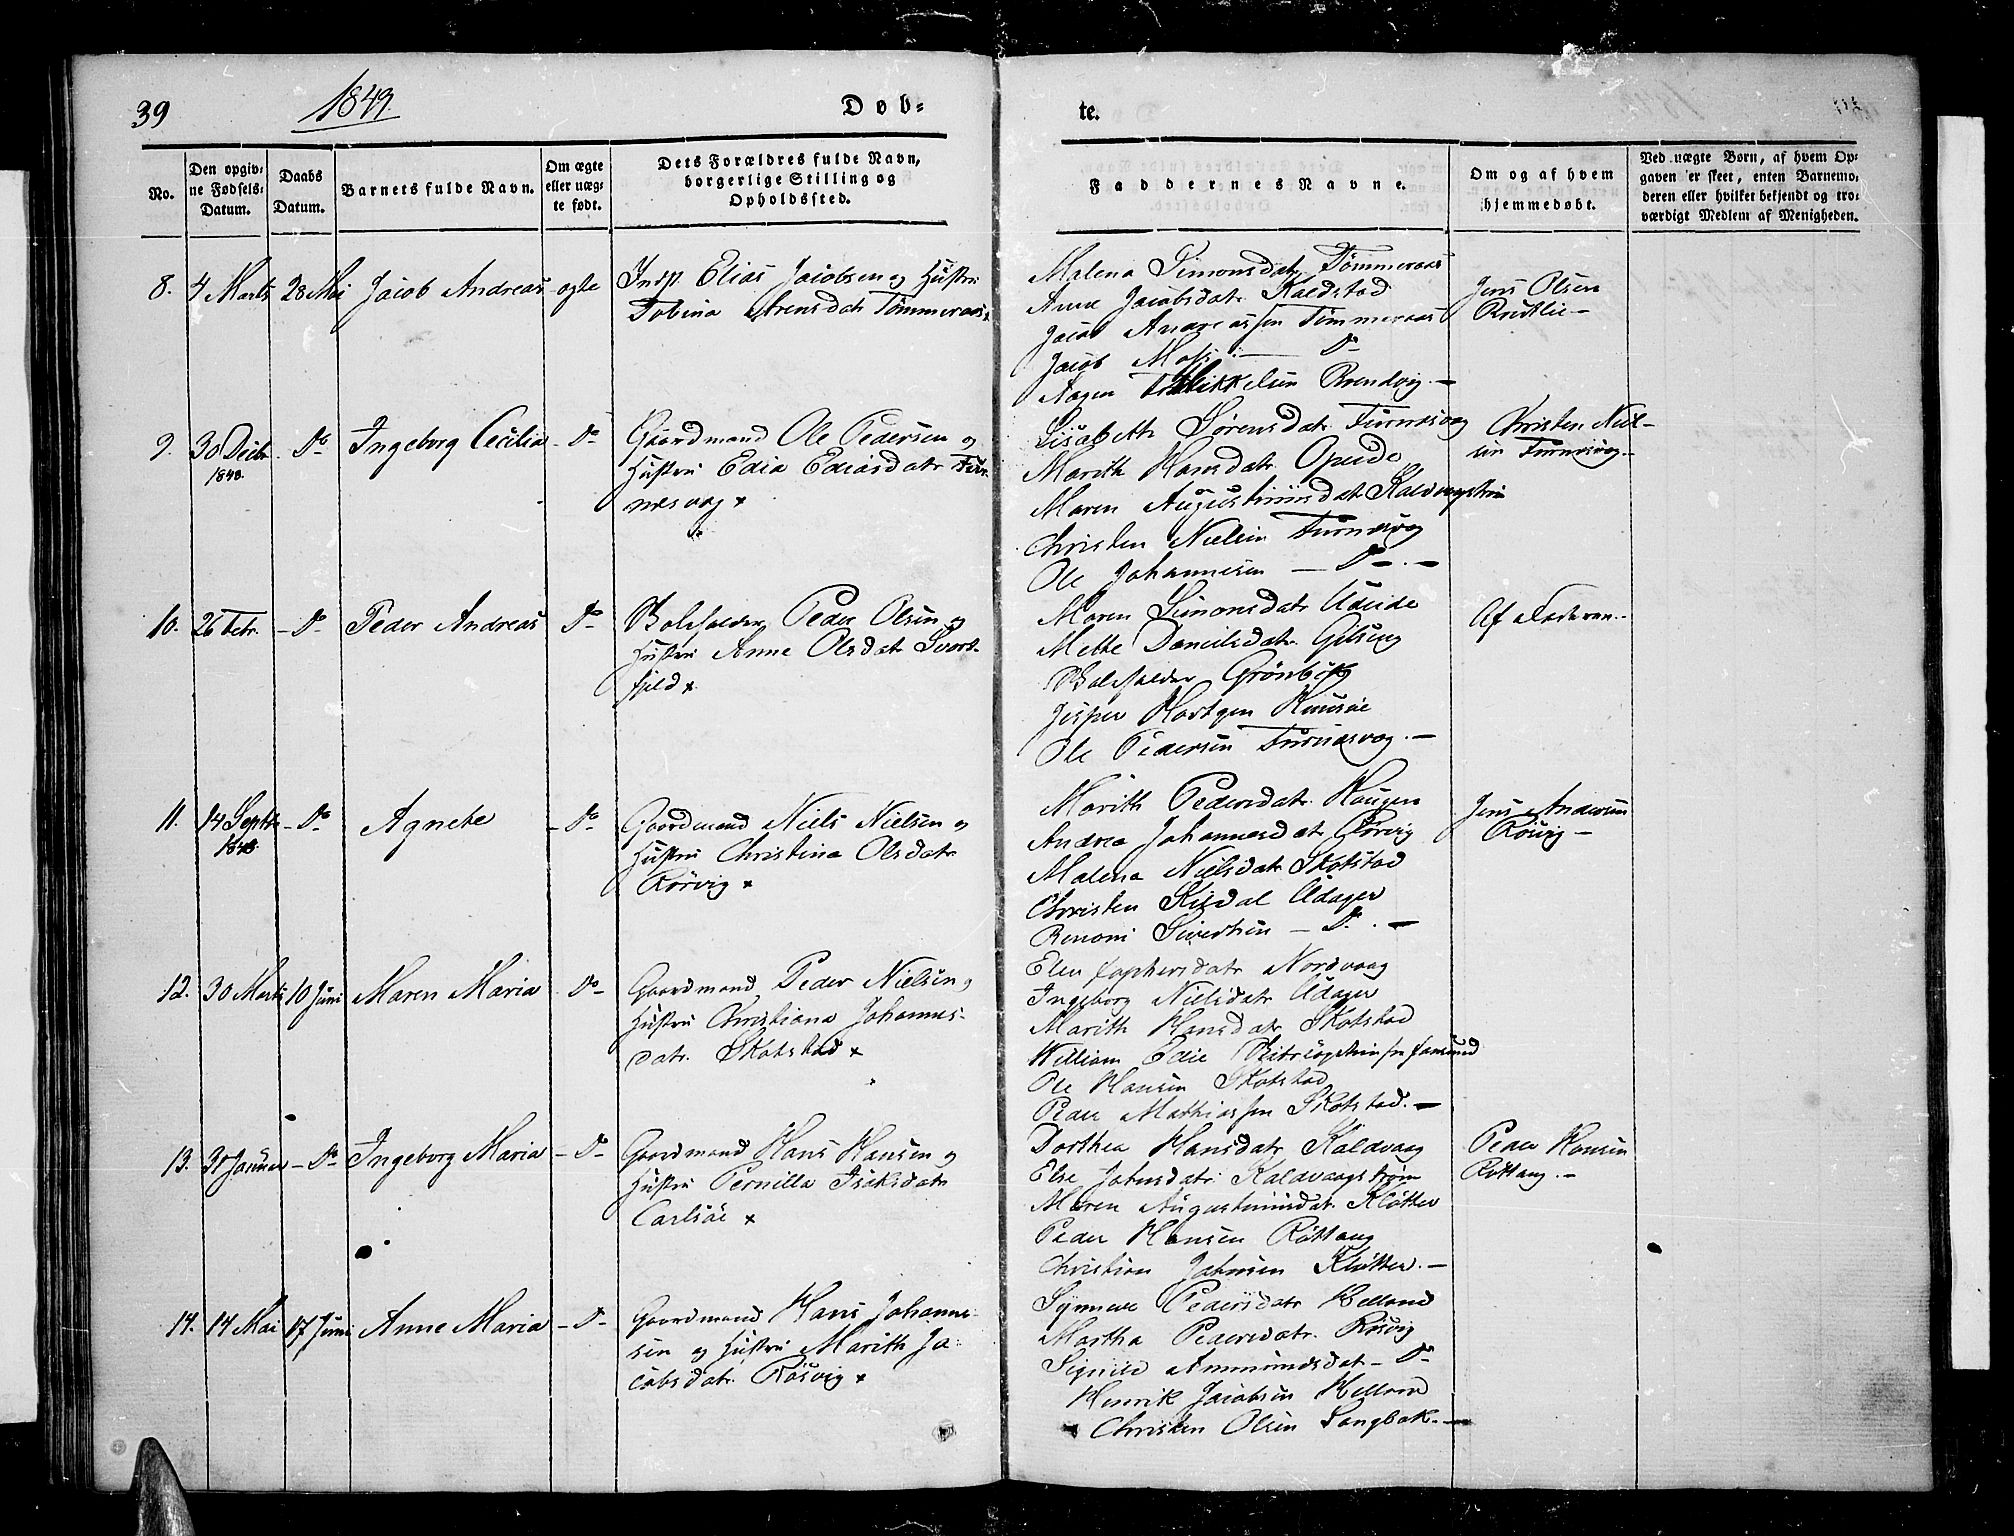 39
1849.
Døb-
te.
No.
Den opgiv-
ne Fødsels-
Datum.
Daabs
Datum.
Barnets fulde Navn.
Om ægte
eller uæg-
te født.
Dets Forældres fulde Navn,
borgerlige Stilling og
Opholdssted.
Faddernes Navne.
Om og af hvem
hjemmedøbt.
Ved uægte Børn, af hvem Op-
gaven er skeet, enten Barnemo-
deren eller hvilket bekjendt og tro-
værdigt Medlem af Menigheden.
8. 4 Marts 28 Mai Jacob Andreas ægte
Indst. Elias Jacobsen og Hustru
Tobina Arensdatr Tømmeraas x
Malena Simonsdatr Tømmeraas
Anne Jacobsdatr. Kaldstad
Jacob Andreassen Tømmeraas
Jacob Mos: — Do
Aagen Mikkelsen Brendvig. —
Jens Olsen
9. 30 Decbr 1848. Do Ingeborg Cecilia — Do
Gaardmand Ole Pedersen og
Hustru Edia Eliasdatr Fur-
næsvaag x
Lisabeth Sørensdatr. Furnæsvaag
Marith Hansdatr. Opeide
Maren Augustinusdatr Kaldvagstrøm
Christen Nielsen Furnæsvag
Ole Johannesen — Do. —
Christen Niel-
sen Furnæsvag. —
10. 26 Febr. — Do Peder Andreas Do
Peder Olsen og
Hustru Anne Olsdatr Svart-
fjeld x
Maren Simonsdatr Udeide
Mette Danielsdatr.
Jesper Hartgen
Ole Pedersen Furnæsvag. —
Af Faderen. —
11. 14 Septbr 1848. — Do Agnethe — Do
Gaardmand Niels Nielsen og
Hustru Christina Olsdatr
Rørvig x
Marith Pedersdatr. Haugen
Andrea Johannesdatr. Rørvig
Malena Nielsdatr. Skotstad
Christen Kildal Udager
Benoni Sivertsen — Do. —
Jens Andersen
Røsvig —
12. 30 Marts 10 Juni Maren Maria Do
Gaardmand Peder Nielsen og
Hustru Christiana Johannes-
datr. Skotstad x
Elen Nordvaag
Ingeborg Nielsdatr Udager
Marith Hansdatr. Skotstad
William Edie
Ole Hansen Skotstad
Peder Mathiassen Skotstad. —
13. 31 Januar — Do Ingeborg Maria — Do
Gaardmand Hans Hansen og
Hustru Pernilla Isaksdatr
Carlsøe x
Dorthea Hansdatr Kaldvaag
Else Johnsdatr Kaldvaagstrøm
Maren Augustinusdat. Kløtter
Peder Hansen Røttang
Christian Johnsen Kløtter. —
Peder Hansen
Røttang. —
14. 14 Mai 17 Juni Anne Maria — Do
Gaardmand Hans Johanne-
sen og Hustru Marith Ja-
cobsdatr. Røsvig x
Synneve Pedersdatr Helland
Martha Pedersdatr. Røsvig
Signild Ammundsdat — Do
Henrik Jacobsen Helland
Christen Olsen Langbak. —